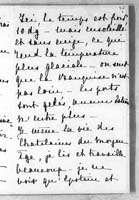 Ici, le temps est pour
10 dg – mais ensoleillé
et sans neige, ce qui
rend la température
plus glaciale – on sent
que la banquise n'est
pas loin – les ports
sont gelés, aucun
n'entre plus –
Je mène la vie des
Chatelains du moyen
âge, je lis et travaille
beaucoup – je ne
vois qu'Epstein et